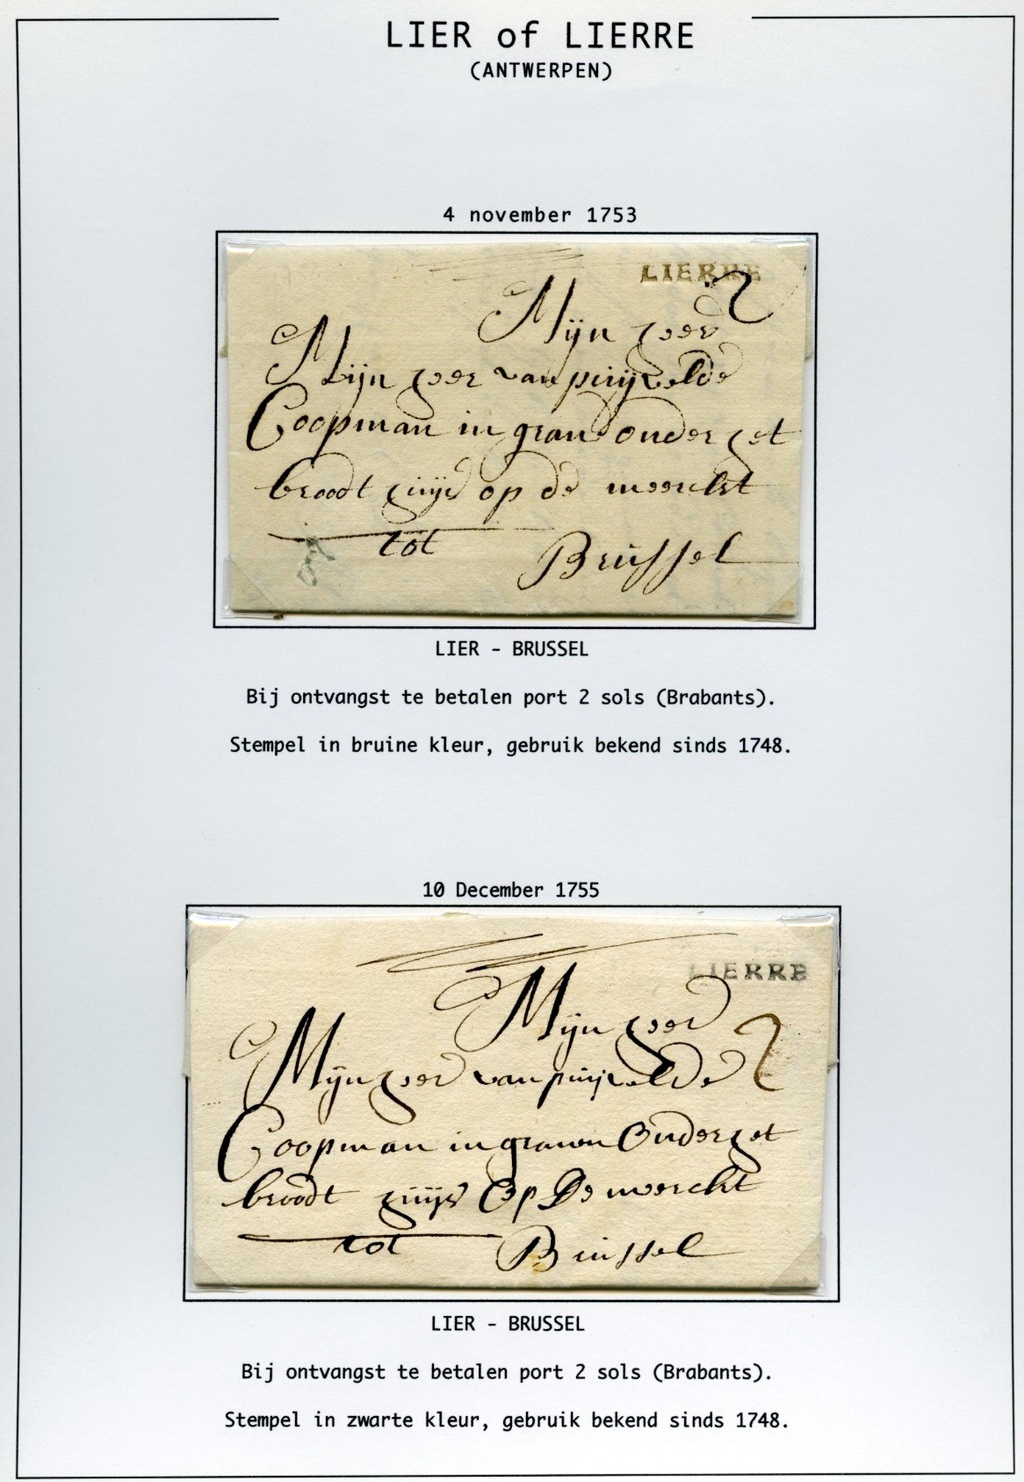 LIER of LIERRE
(ANTWERPEN)
4 november 1753
LIERRE
2
Mijn heer
Mijn heer van puijvelde
Coopman in graen onder het
broodt huijs op de merckt
tot Brussel
LIER - BRUSSEL
Bij ontvangst te betalen port 2 sols (Brabants).
Stempel in bruine kleur, gebruik bekend sinds 1748.
10 December 1755
LIERRE
Mijn heer
2
Mijn heer van puijvelde
Coopman in graenen Onder het
broodt huijs Op De merckt
tot Brussel
LIER - BRUSSEL
Bij ontvangst te betalen port 2 sols (Brabants).
Stempel in zwarte kleur, gebruik bekend sinds 1748.